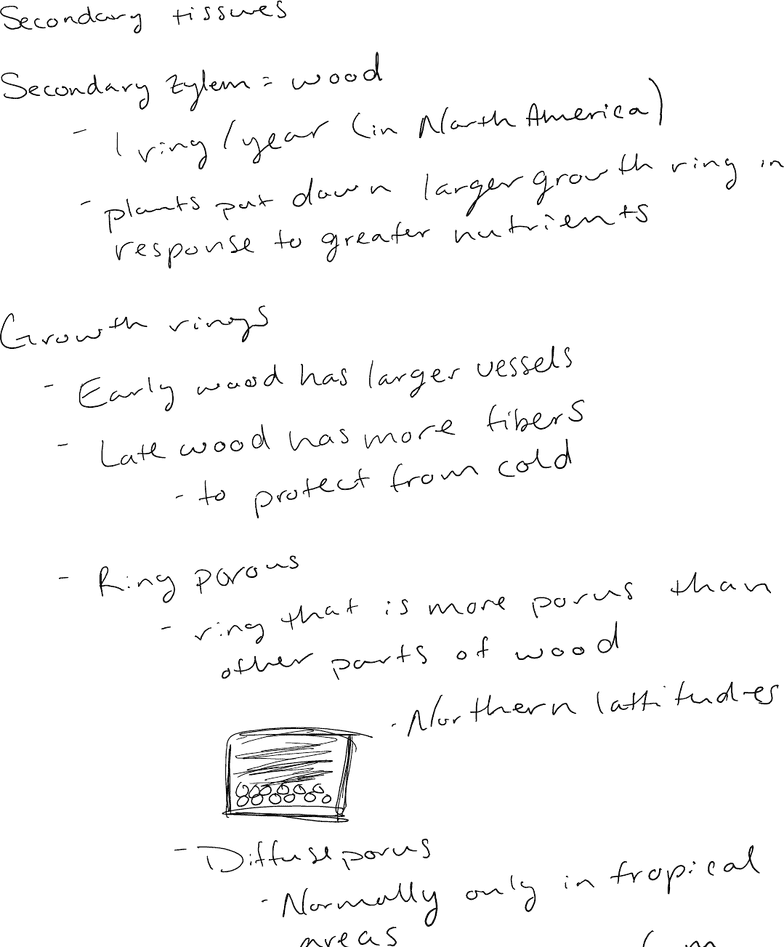 Secondary tissues
Secondary Zylem = wood
- 1 ring / year (in North America)
- plants put down larger growth ring in
response to greater nutrients
Growth rings
- Early wood has larger vessels
- Late wood has more fibers
- to protect from cold
- Ring porous
- ring that is more porus than
other parts of wood
- Northern lattitudes
- Diffuse porus
- Normally only in tropical
areas